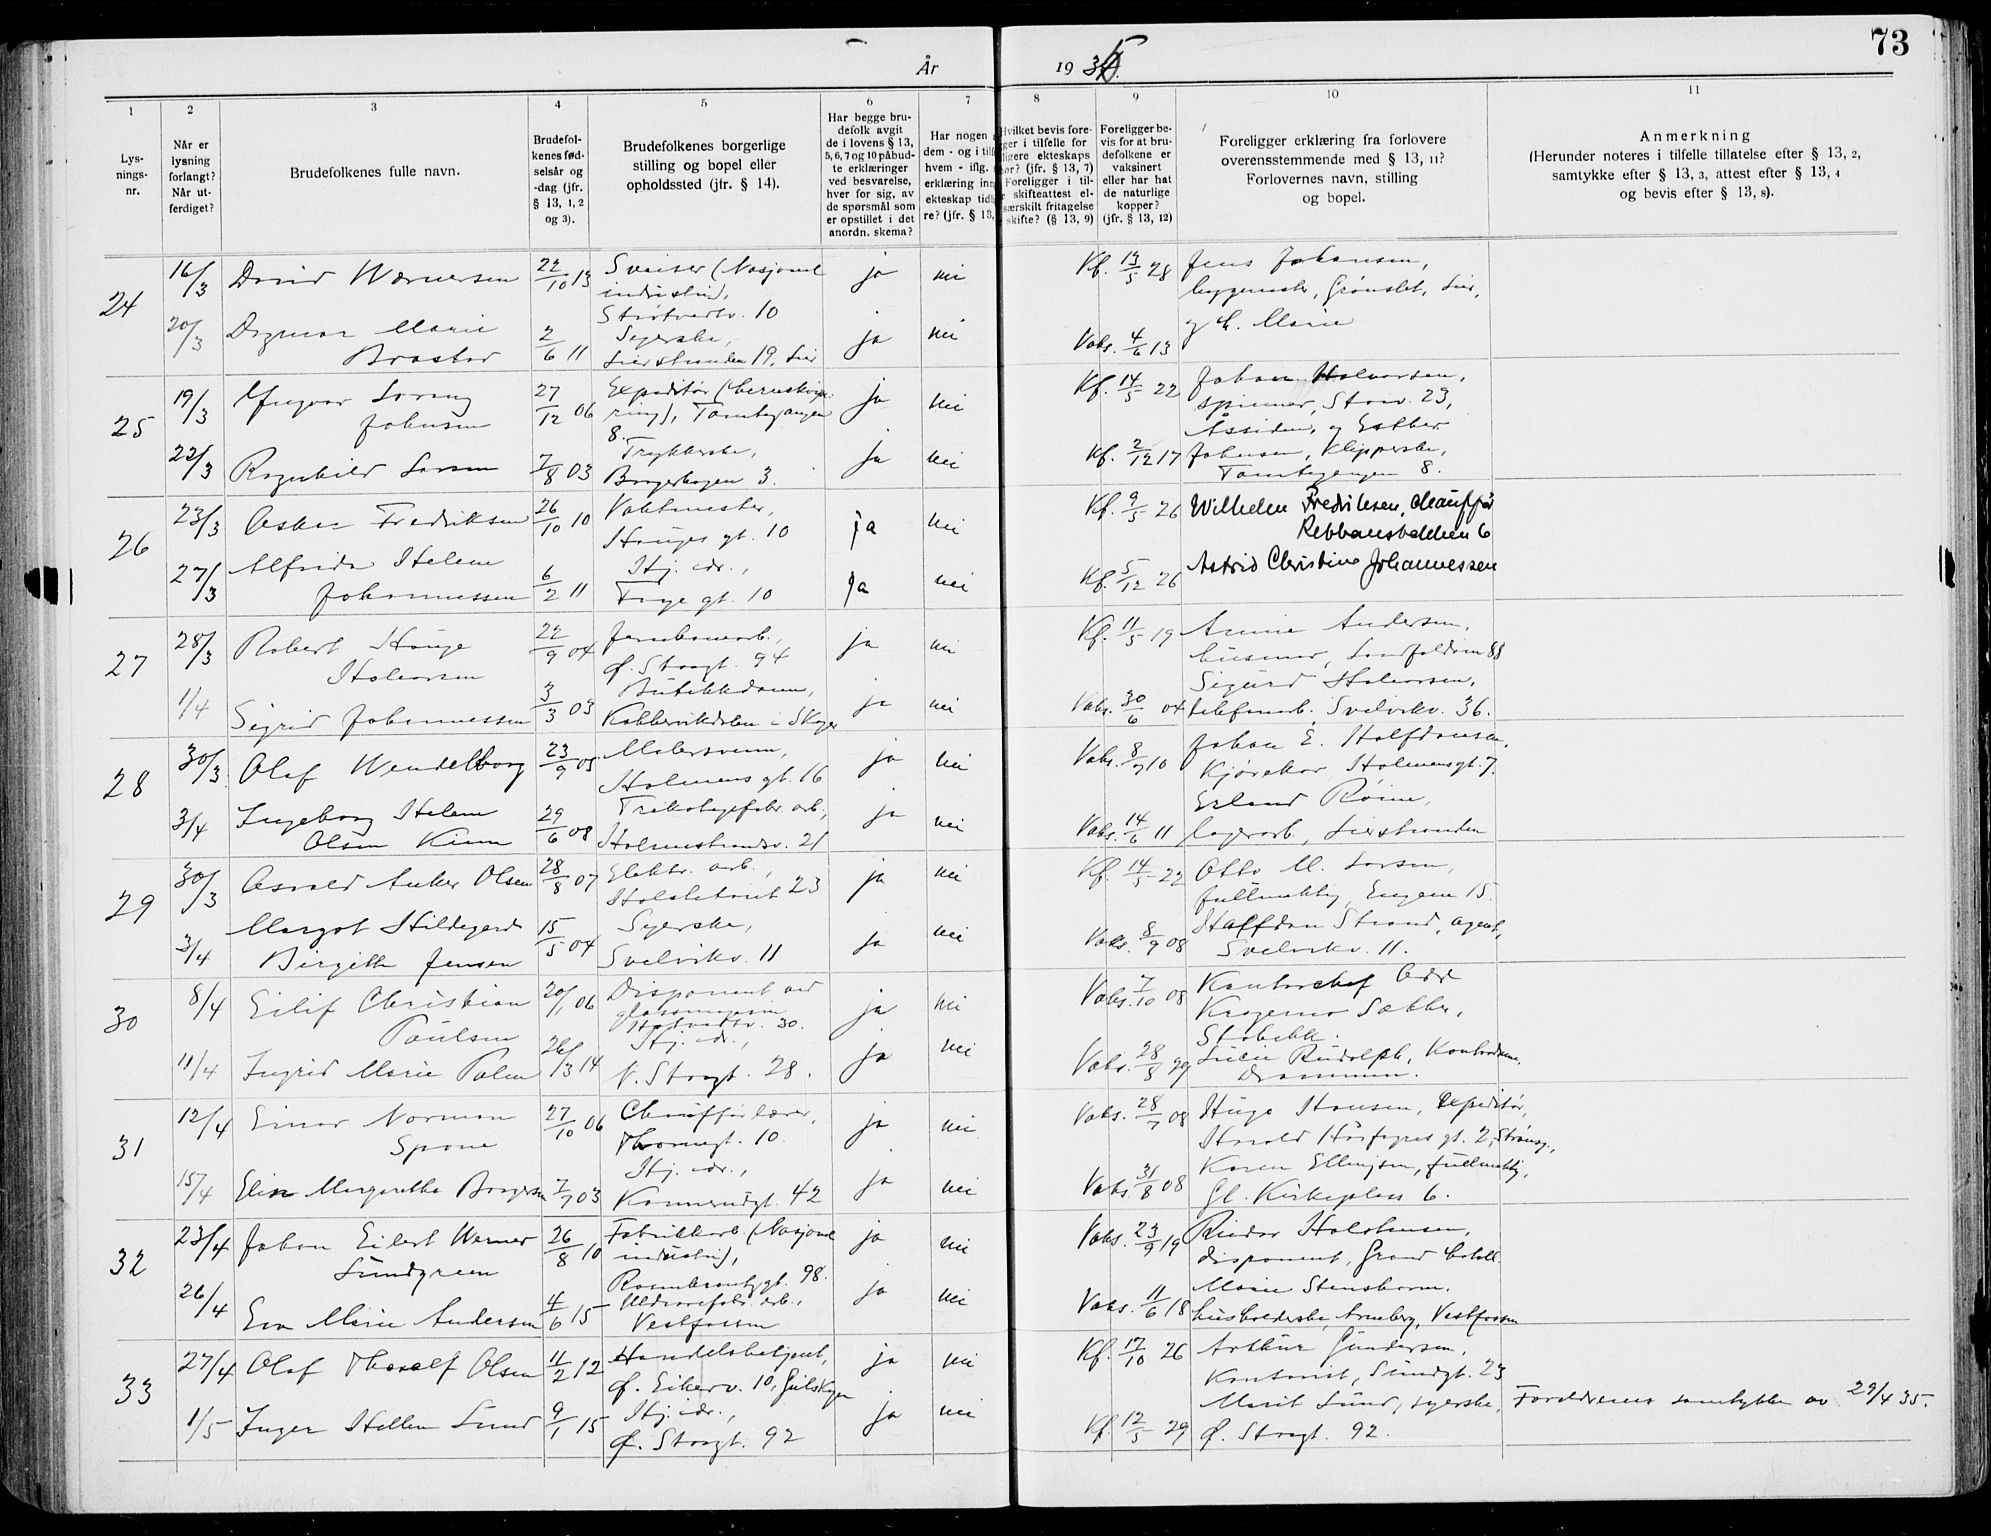 73
År 1935
1 2 3 4 5 6 7 8 9 10 11
Lys-
nings-
nr.
Når er
lysning
forlangt?
Når ut-
ferdiget?
Brudefolkenes fulle navn.
Brudefol-
kenes fød-
selsår og
-dag (jfr.
§ 13, 1, 2
og 3).
Brudefolkenes borgerlige
stilling og bopel eller
opholdssted (jfr. § 14).
Har begge bru-
defolk avgit
de i lovens § 13,
5, 6, 7 og 10 påbud-
te erklæringer
ved besvarelse,
hver for sig, av
de spørsmål som
er opstillet i det
anordn. skema?
Har nogen
dem - og i tilf
hvem - iflg.
erklæring inn
ekteskap tidl
re? (jfr. § 13,
Hvilket bevis fore-
ger i tilfelle for
ligere ekteskaps
hør? (jfr. § 13, 7)
Foreligger i til-
e skifteattest el-
særskilt fritagelse
skifte? (§ 13, 9)
Foreligger be-
vis for at bru-
defolkene er
vaksinert
eller har hat
de naturlige
kopper?
(jfr. § 13, 12)
Foreligger erklæring fra forlovere
overensstemmende med § 13, 11?
Forlovernes navn, stilling
og bopel.
Anmerkning
(Herunder noteres i tilfelle tillatelse efter § 13, 2,
samtykke efter § 13, 3, attest efter § 13, 4
og bevis efter § 13, 8).
24 16/3 David Wernersen 22/10 13 Sveiser (Nasjonal
industri),
Støtvertv. 10 ja nei Kf. 13/5 28 Jens Johansen,
byggmester, Grønslet, Lier,
20/3 Dagmar Marie
Braatar 2/6 11 Syerske,
Lierstranden 19, Lier ja nei Vaks. 4/6 13 og h. Marie
25 19/3 Yngvar Loreng
Johnsen 27/12 06 Expeditør
Tomtegangen
8. ja nei Kf. 14/5 22 Johan Halvorsen,
spinner, Storv. 23,
Åssiden, og Esther
22/3 Ragnhild Larsen 7/8 03 Trykkerske,
Borgerhagen 3. ja nei Kf. 2/12 17 Johnsen, Klipperske,
Tomtegangen 8.
26 23/3 Asker Fredriksen 26/10 10 Vaktmester,
Hauges gt. 10 ja nei Kf. 9/5 26 Wilhelm Fredriksen, chauffør
Rebbansbakken 6
27/3 Alfrida Helene
Johannessen 6/2 11 Hj. idr.,
Tage gt. 10 ja nei Kf. 5/12 26 Astrid Christine Johannessen
27 28/3 Robert Hauge
Halvorsen 22/9 04 Jernbanearb.,
Ø. Storgt. 94 ja nei Kf. 11/5 19 Annie Andersen,
husmor, Landfaldøin 88
1/4 Sigrid Johannessen 3/3 03 Butikkdame,
Kobbervikdalen i Skoger ja nei Vaks. 30/6 04 Sigurd Halvorsen,
telefonarb. Svelvikv. 36.
28 30/3 Olaf Wendelborg 23/9 05 Malersvenn,
Holmens gt. 16 ja nei Vaks. 8/7 10 Johan E. Halfdansen,
Kjørekar, Holmensgt. 7.
3/4 Ingeborg Helene
Olsen Kinn 29/6 08 Trikotagefabr. arb.,
Holmestrandsv. 21 ja nei Vaks. 14/6 11 Erland Røine,
lagerarb., Lierstranden
29 30/3 Asvald Anker Olsen 28/8 07 Elektr. arb.,
23 ja nei Kf. 14/5 22 Otto M. Larsen,
fullmektig, Engene 15.
3/4 Margot Hildegard
Birgitte Jensen 15/5 04 Syerske,
Svelvikv. 11 ja nei Vaks. 8/9 08 Staffdan Strand, agent,
Svelvikv. 11.
30 8/4 Eilif Christian
Paulsen 20/1 06 Disponent ved
glassmagasin
30. ja nei Vaks. 7/10 08 Kontorchef Odd
Kragemo Sather,
Stabekk.
11/4 Ingrid Marie Palm 26/3 14 Hj. idr.,
N. Storgt. 28. ja nei Vaks. 28/5 29 Lucie Rudolph, Kontordame,
Drammen.
31 12/4 Einar Norman
Spone 27/10 06 Chauffør lærer,
Thornegt. 10. ja nei Vaks. 28/7 08 Hugo Hansen, expeditør,
Harald Hårfagres gt. 2, Strømsg.,
15/4 Elin Margarethe Borgersen 7/7 03 Hj. idr.,
Konnerudgt. 42 ja nei Vaks. 31/8 08 Karen Ellingsen, fullmektig,
Gl. Kirkeplass 6.
32 23/4 Johan Eilert Werner
Lundgreen 26/8 10 Fabrikkarb. (Nasjonal
industri),
Rosenkrantzgt. 98. ja nei Vaks. 23/9 19 Reidar Halvorsen,
disponent, Grand hotell.
26/4 Eva Marie Andersen 4/6 15 Uldvarefabr. arb.,
Vestfossen ja nei Vaks. 11/6 18 Marie Stensborn,
husholderske, Arneberg, Vestfossen
33 27/4 Olaf Thoralf Olsen 11/2 12 Handelsbetjent,
Ø. Eikerv. 10, Gulskogen ja nei Kf. 17/10 26 Arthur Gundersen,
Kontorist, Sundgt. 23
1/5 Inger Hellen Lund 9/1 15 Hj. idr.,
Ø. Storgt. 92 ja nei Kf. 12/5 29 Marit Lund, syerske,
Ø. Storgt. 92. Foreldrenes samtykke av 29/4 35.